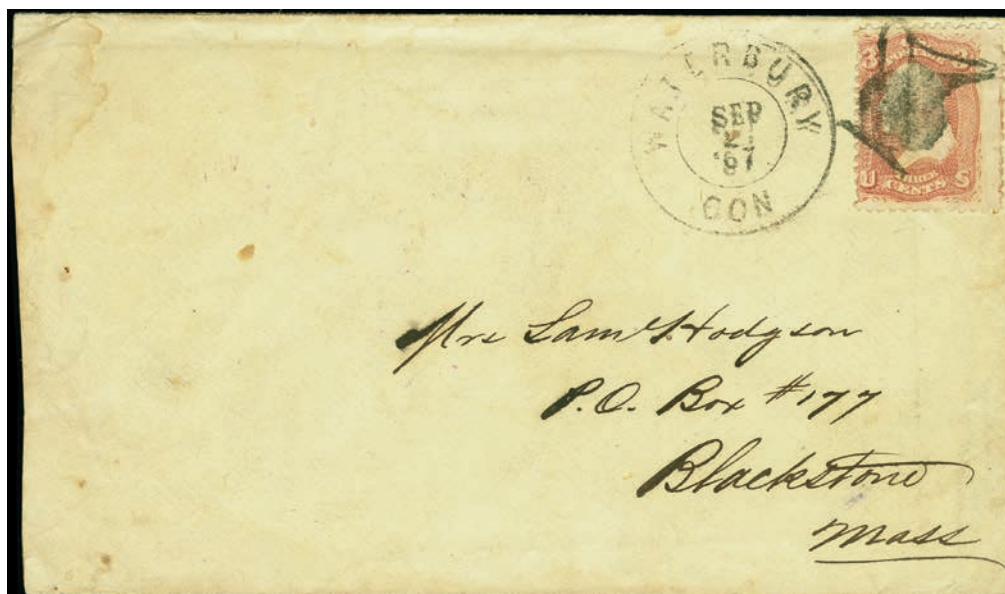 WATERBURY
SEP
21
'67
CON
3 3
U THREE S
CENTS
Mrs Saml Hodgson
P.O. Box #177
Blackstone
Mass